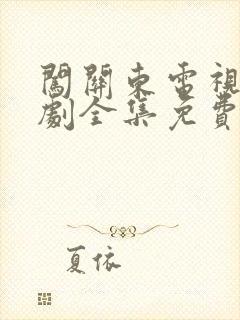 闖關東電視
劇全集免費
夏依